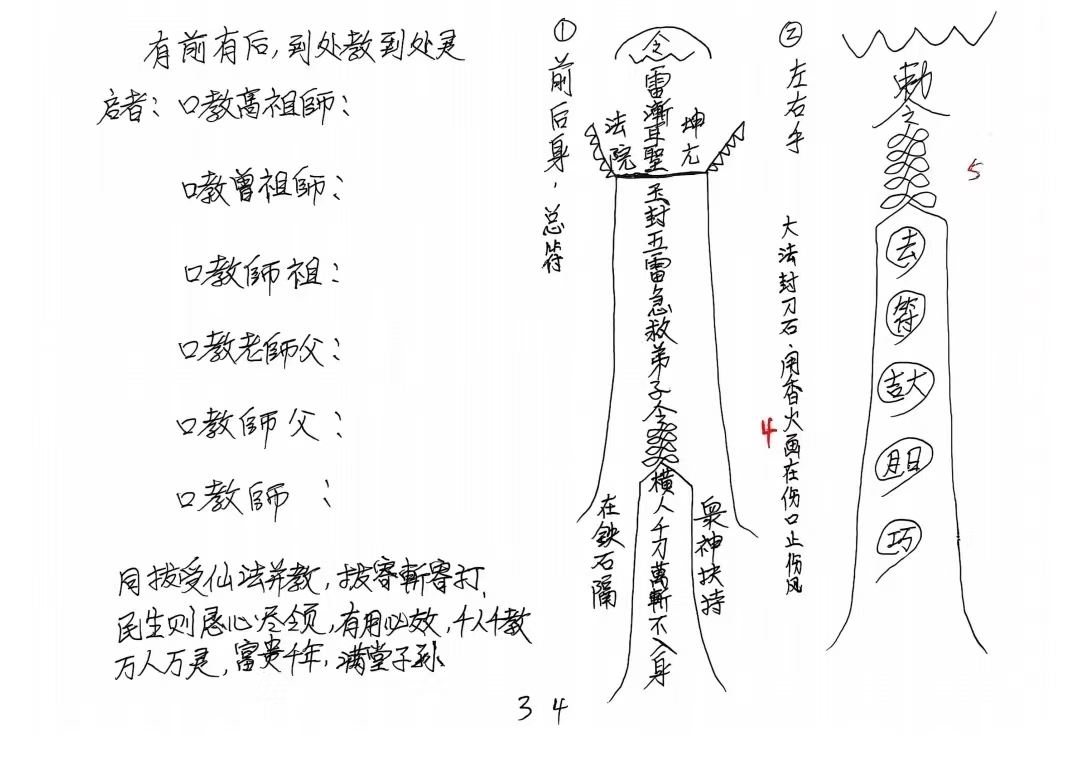 有前有后,到处教到处灵
启者:口教高祖師:
口教曾祖師:
口教師祖:
口教老師父:
口教師父:
口教師:
同拔受仙法并教,拔寄斬寄打,
民生则恳心尽领,有用必效,千人千教
万人万灵,富贵千年,满堂子孙
①前后身,总符
令
雷漸耳聖
法院
坤亢
玉封五雷急救弟子令
橫人千刀萬斬不入身
在鉄石隔
衆神扶持
②左右手
大法封刀石,用香火画在伤口止伤风
4
勅令
去
符
吉大
月日
巧
5
34